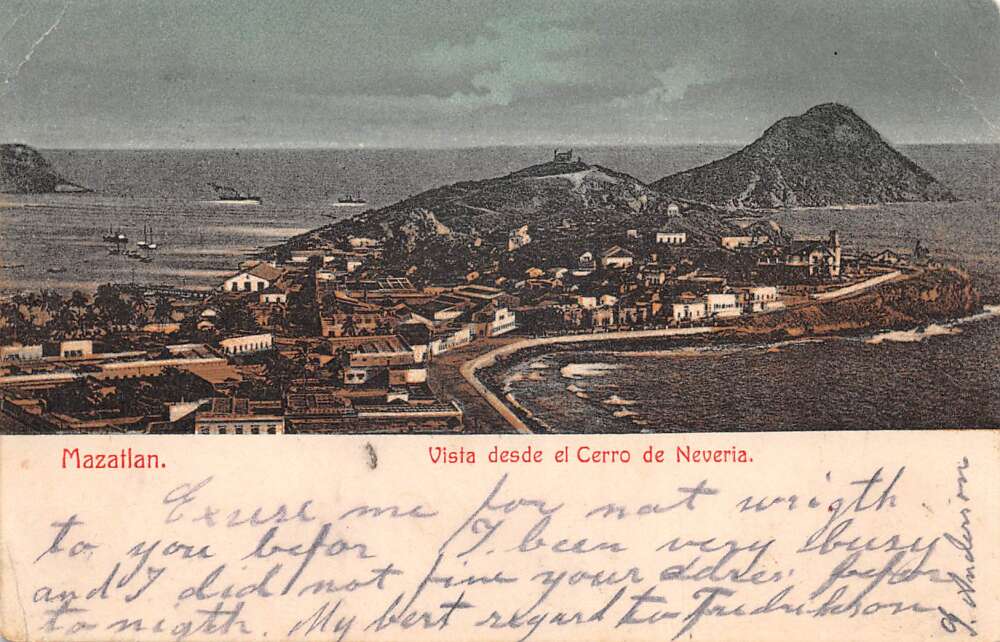 Mazatlan.
Vista desde el Cerro de Neveria.
Exuse me for not wrigth
to you befor I. been very busy
and I did not fine your adres befor
to nigth. My bert regard to Fredrikson
G. Anderson